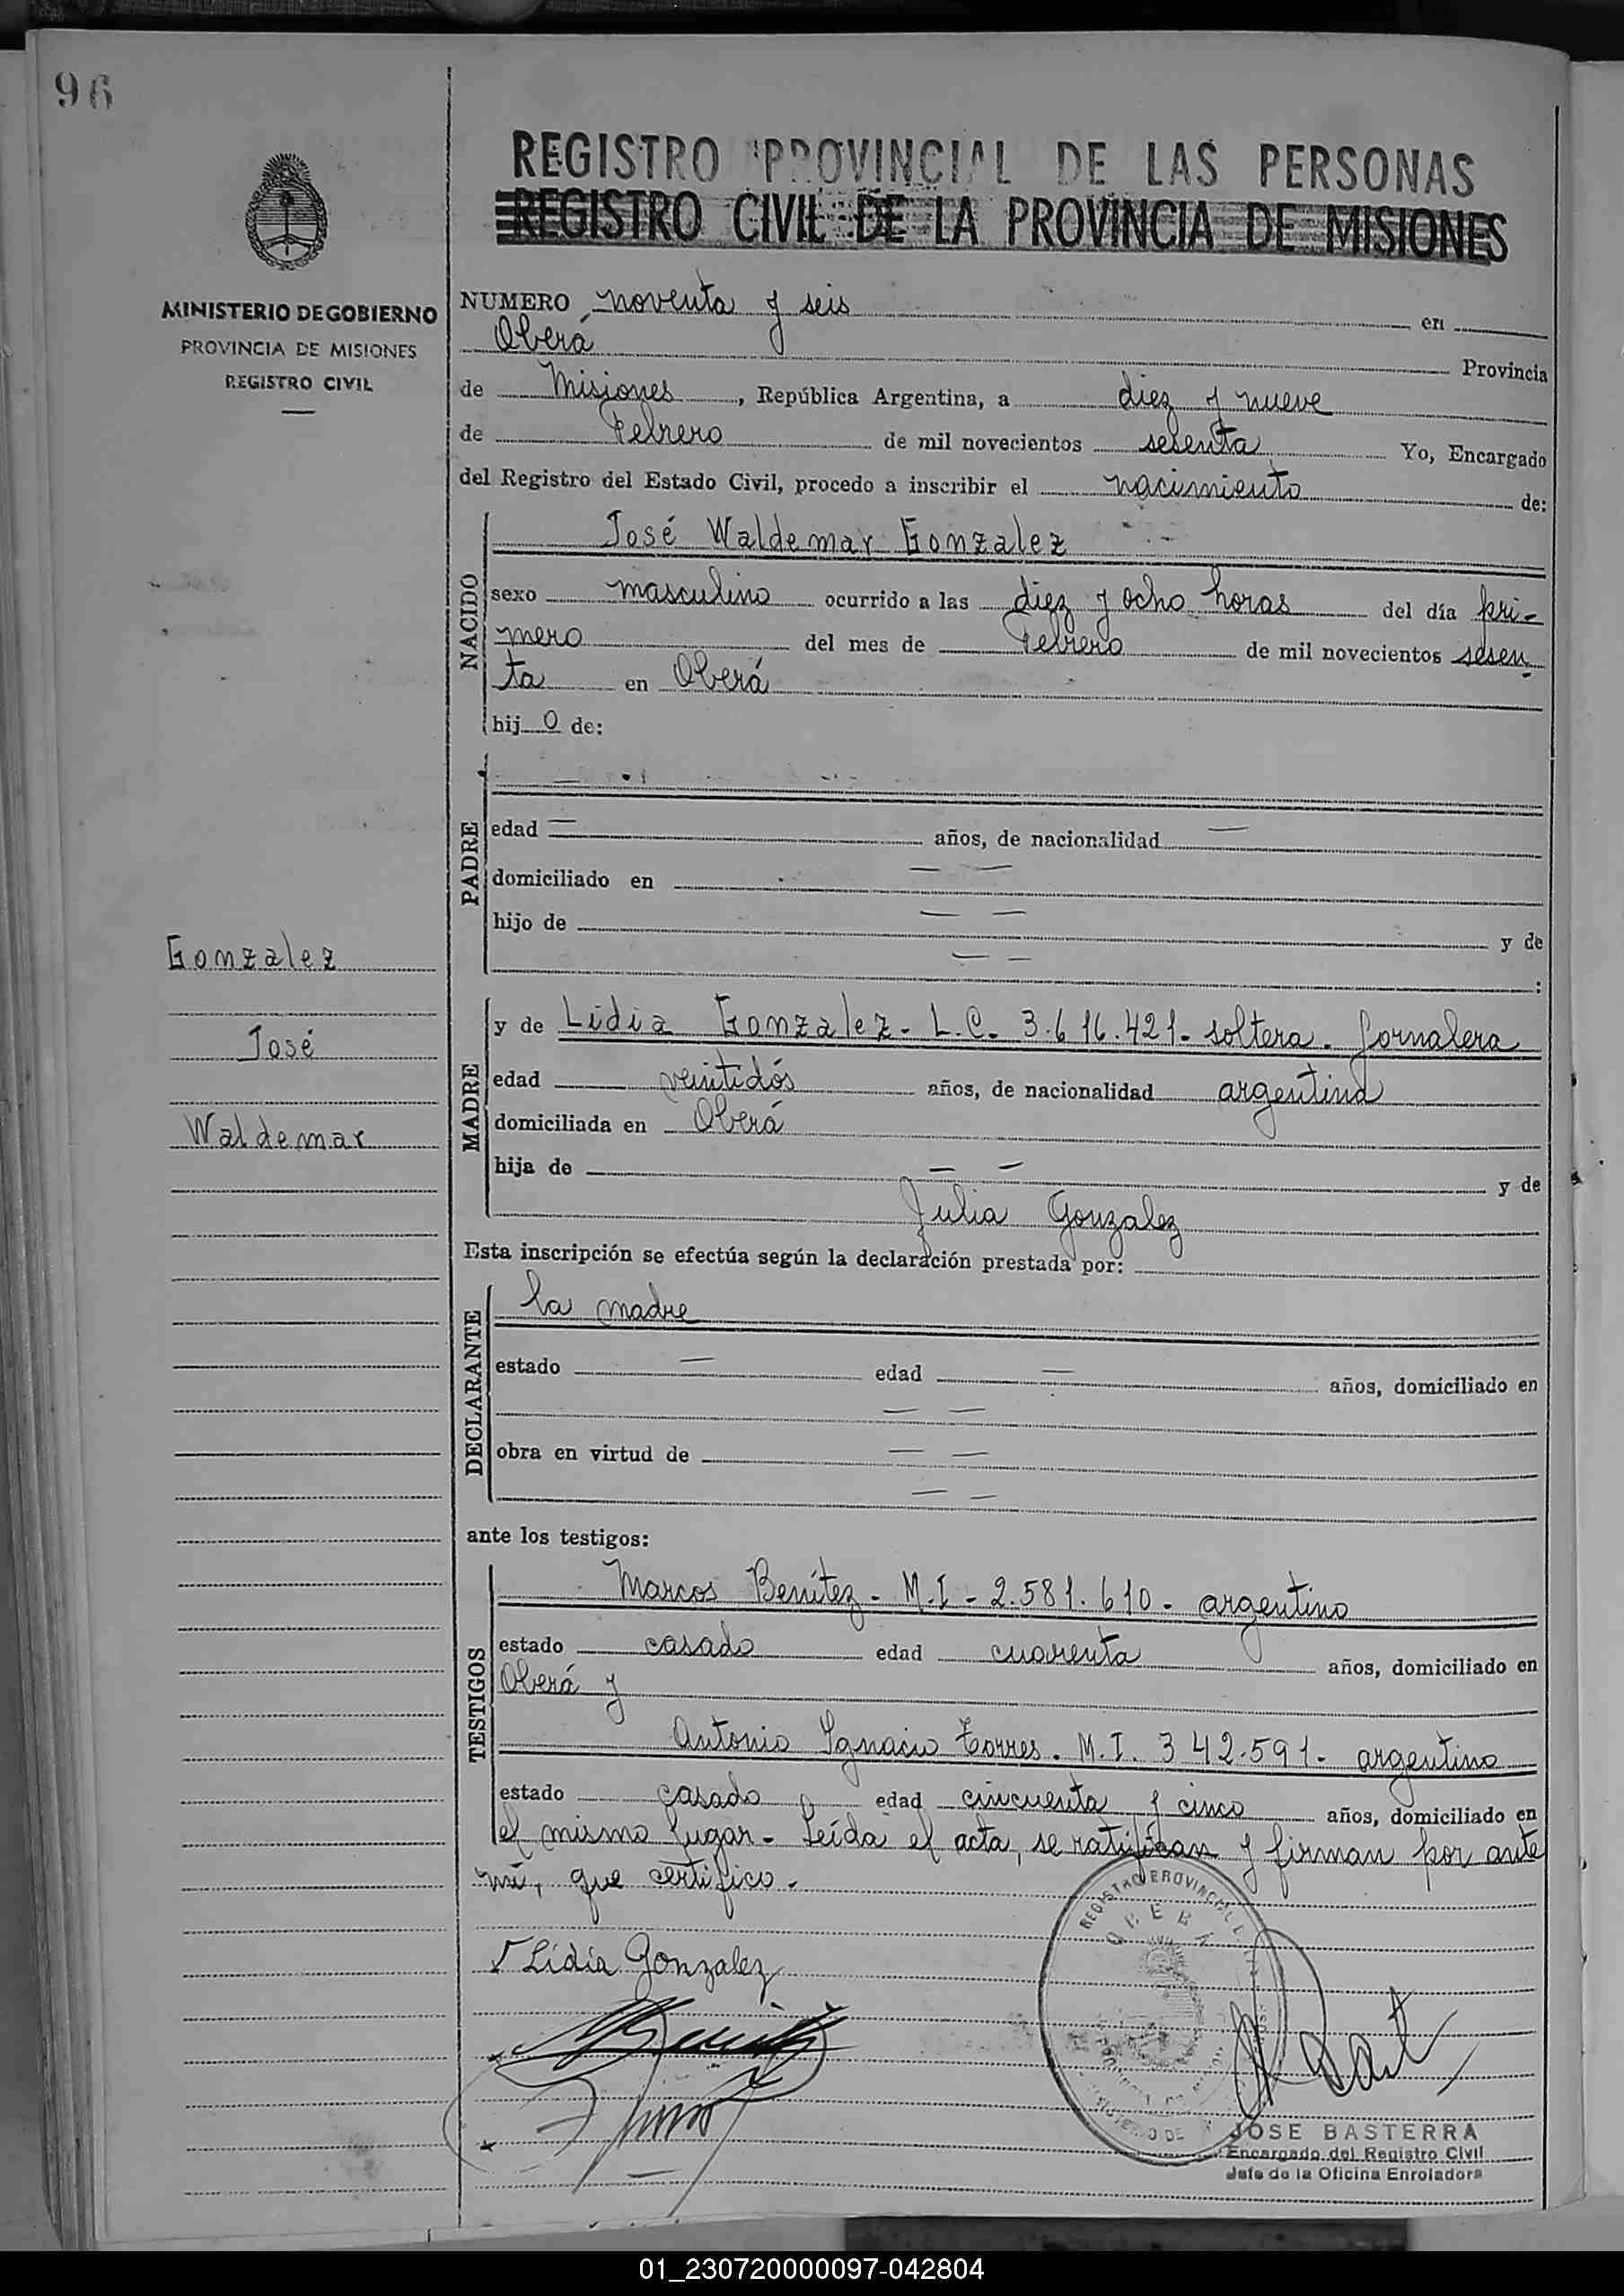 96
REGISTRO PROVINCIAL DE LAS PERSONAS
REGISTRO CIVIL DE LA PROVINCIA DE MISIONES
MINISTERIO DE GOBIERNO
PROVINCIA DE MISIONES
REGISTRO CIVIL
NUMERO noventa y seis en
Oberá Provincia
de Misiones, República Argentina, a diez y nueve
de Febrero de mil novecientos sesenta Yo, Encargado
del Registro del Estado Civil, procedo a inscribir el nacimiento de:
NACIDO
José Waldemar Gonzalez
sexo masculino ocurrido a las diez y ocho horas del día pri-
mero del mes de Febrero de mil novecientos sesen-
ta en Oberá
hij o de:
PADRE
edad — años, de nacionalidad —
domiciliado en — —
hijo de — — y de
— — :
Gonzalez
José
Waldemar
MADRE
y de Lidia Gonzalez - L.C. 3.616.421 - soltera. Jornalera
edad veintidós años, de nacionalidad argentina
domiciliada en Oberá
hija de — — y de
Julia Gonzalez
Esta inscripción se efectúa según la declaración prestada por:
DECLARANTE
la madre
estado — edad — años, domiciliado en
— —
obra en virtud de — —
— —
ante los testigos:
TESTIGOS
Marcos Benítez - M.I - 2.581.610 - argentino
estado casado edad cuarenta años, domiciliado en
Oberá y
Antonio Ignacio Torres. M.I. 342.591 - argentino
estado casado edad cincuenta y cinco años, domiciliado en
el mismo lugar - Leída el acta, se ratifican y firman por ante
mí, que certifico.
Lidia Gonzalez
REGISTRO PROVINCIAL
OBERA
JOSE BASTERRA
Encargado del Registro Civil
Jefe de la Oficina Enroladora
01_230720000097-042804